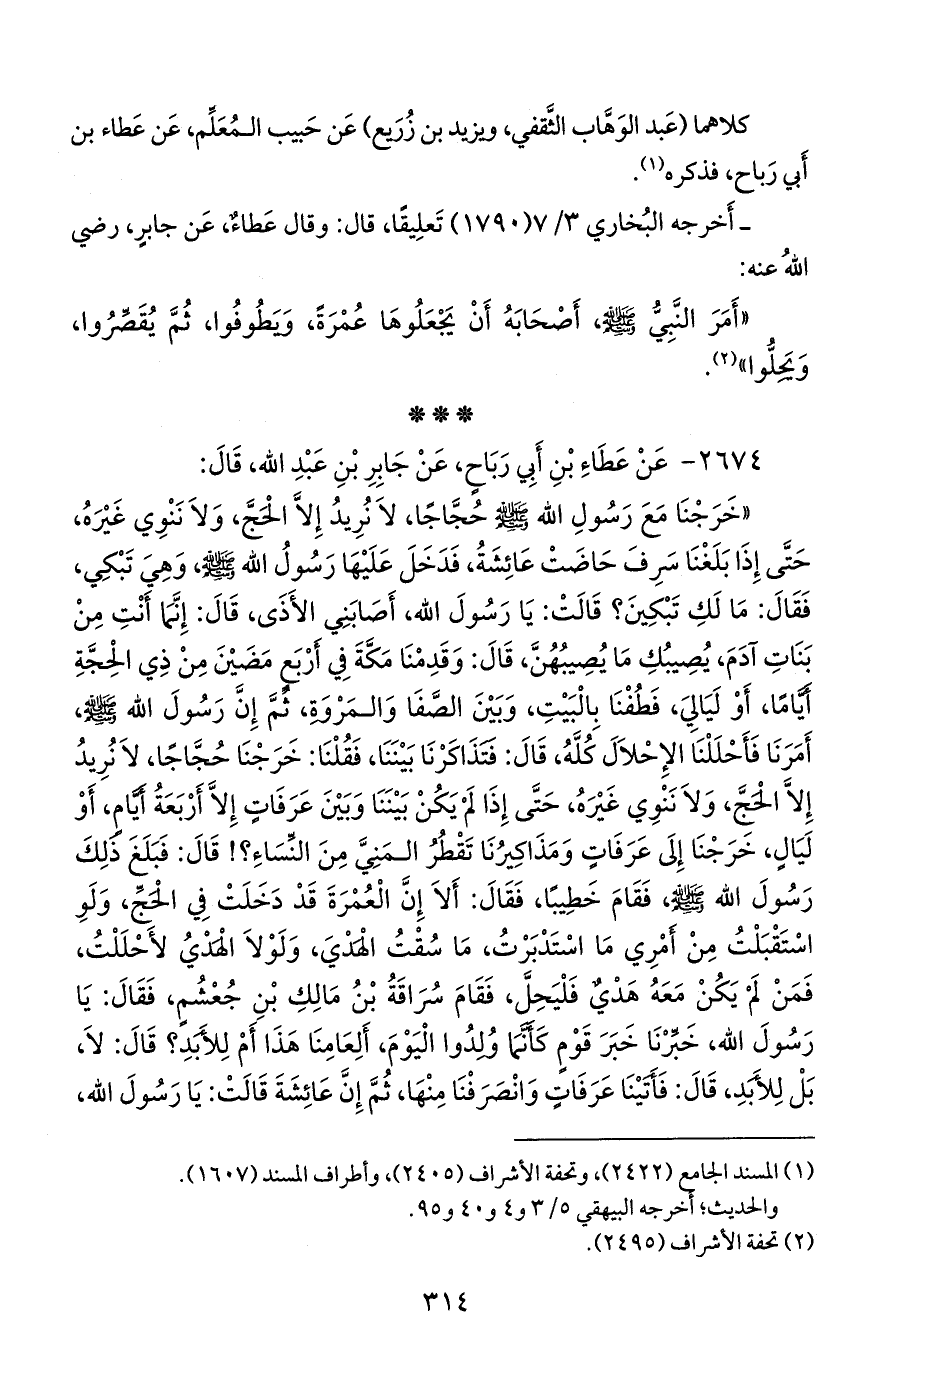 كلاهما (عَبد الوَهَّاب الثَّقفي، ويزيد بن زُرَيع) عَن حَبيب الـمُعَلِّم، عَن عَطاء بن
أَبي رَباح، فذكره(١).
ـ أَخرجه البُخاري ٣/ ٧(١٧٩٠) تَعلِيقًا، قال: وقال عَطاءٌ، عَن جابرٍ، رضي
اللهُ عنه:
«أَمَرَ النَّبِيُّ ﷺ، أَصْحَابَهُ أَنْ يَجْعَلُوهَا عُمْرَةً، وَيَطُوفُوا، ثُمَّ يُقَصِّرُوا،
وَيَحِلُّوا»(٢).
***
٢٦٧٤- عَنْ عَطَاءِ بْنِ أَبِي رَبَاحٍ، عَنْ جَابِرِ بْنِ عَبْدِ الله، قَالَ:
«خَرَجْنَا مَعَ رَسُولِ الله ﷺ حُجَّاجًا، لاَ نُرِيدُ إِلاَّ الْحَجَّ، وَلاَ نَنْوِي غَيْرَهُ،
حَتَّى إِذَا بَلَغْنَا سَرِفَ حَاضَتْ عَائِشَةُ، فَدَخَلَ عَلَيْهَا رَسُولُ الله ﷺ، وَهِيَ تَبْكِي،
فَقَالَ: مَا لَكِ تَبْكِينَ؟ قَالَتْ: يَا رَسُولَ الله، أَصَابَنِي الأَذَى، قَالَ: إِنَّمَا أَنْتِ مِنْ
بَنَاتِ آدَمَ، يُصِيبُكِ مَا يُصِيبُهُنَّ، قَالَ: وَقَدِمْنَا مَكَّةَ فِي أَرْبَعٍ مَضَيْنَ مِنْ ذِي الْحِجَّةِ
أَيَّامًا، أَوْ لَيَالِيَ، فَطُفْنَا بِالْبَيْتِ، وَبَيْنَ الصَّفَا وَالـمَرْوَةِ، ثُمَّ إِنَّ رَسُولَ الله ﷺ،
أَمَرَنَا فَأَحْلَلْنَا الإِحْلاَلَ كُلَّهُ، قَالَ: فَتَذَاكَرْنَا بَيْنَنَا، فَقُلْنَا: خَرَجْنَا حُجَّاجًا، لاَ نُرِيدُ
إِلاَّ الْحَجَّ، وَلاَ نَنْوِي غَيْرَهُ، حَتَّى إِذَا لَمْ يَكُنْ بَيْنَنَا وَبَيْنَ عَرَفَاتٍ إِلاَّ أَرْبَعَةُ أَيَّامٍ، أَوْ
لَيَالٍ، خَرَجْنَا إِلَى عَرَفَاتٍ وَمَذَاكِيرُنَا تَقْطُرُ الـمَنِيَّ مِنَ النِّسَاءِ؟! قَالَ: فَبَلَغَ ذَلِكَ
رَسُولَ الله ﷺ، فَقَامَ خَطِيبًا، فَقَالَ: أَلاَ إِنَّ الْعُمْرَةَ قَدْ دَخَلَتْ فِي الْحَجِّ، وَلَوِ
اسْتَقْبَلْتُ مِنْ أَمْرِي مَا اسْتَدْبَرْتُ، مَا سُقْتُ الْهَدْيَ، وَلَوْلاَ الْهَدْيُ لأَحْلَلْتُ،
فَمَنْ لَمْ يَكُنْ مَعَهُ هَدْيٌ فَلْيَحِلَّ، فَقَامَ سُرَاقَةُ بْنُ مَالِكِ بْنِ جُعْشُمٍ، فَقَالَ: يَا
رَسُولَ الله، خَبِّرْنَا خَبَرَ قَوْمٍ كَأَنَّمَا وُلِدُوا الْيَوْمَ، أَلِعَامِنَا هَذَا أَمْ لِلأَبَدِ؟ قَالَ: لاَ،
بَلْ لِلأَبَدِ، قَالَ: فَأَتَيْنَا عَرَفَاتٍ وَانْصَرَفْنَا مِنْهَا، ثُمَّ إِنَّ عَائِشَةَ قَالَتْ: يَا رَسُولَ الله،
(١) المسند الجامع (٢٤٢٢)، وتحفة الأشراف (٢٤٠٥)، وأطراف المسند (١٦٠٧).
والحديث؛ أخرجه البيهقي ٥/ ٣ و٤ و٤٠ و٩٥.
(٢) تحفة الأشراف (٢٤٩٥).
٣١٤